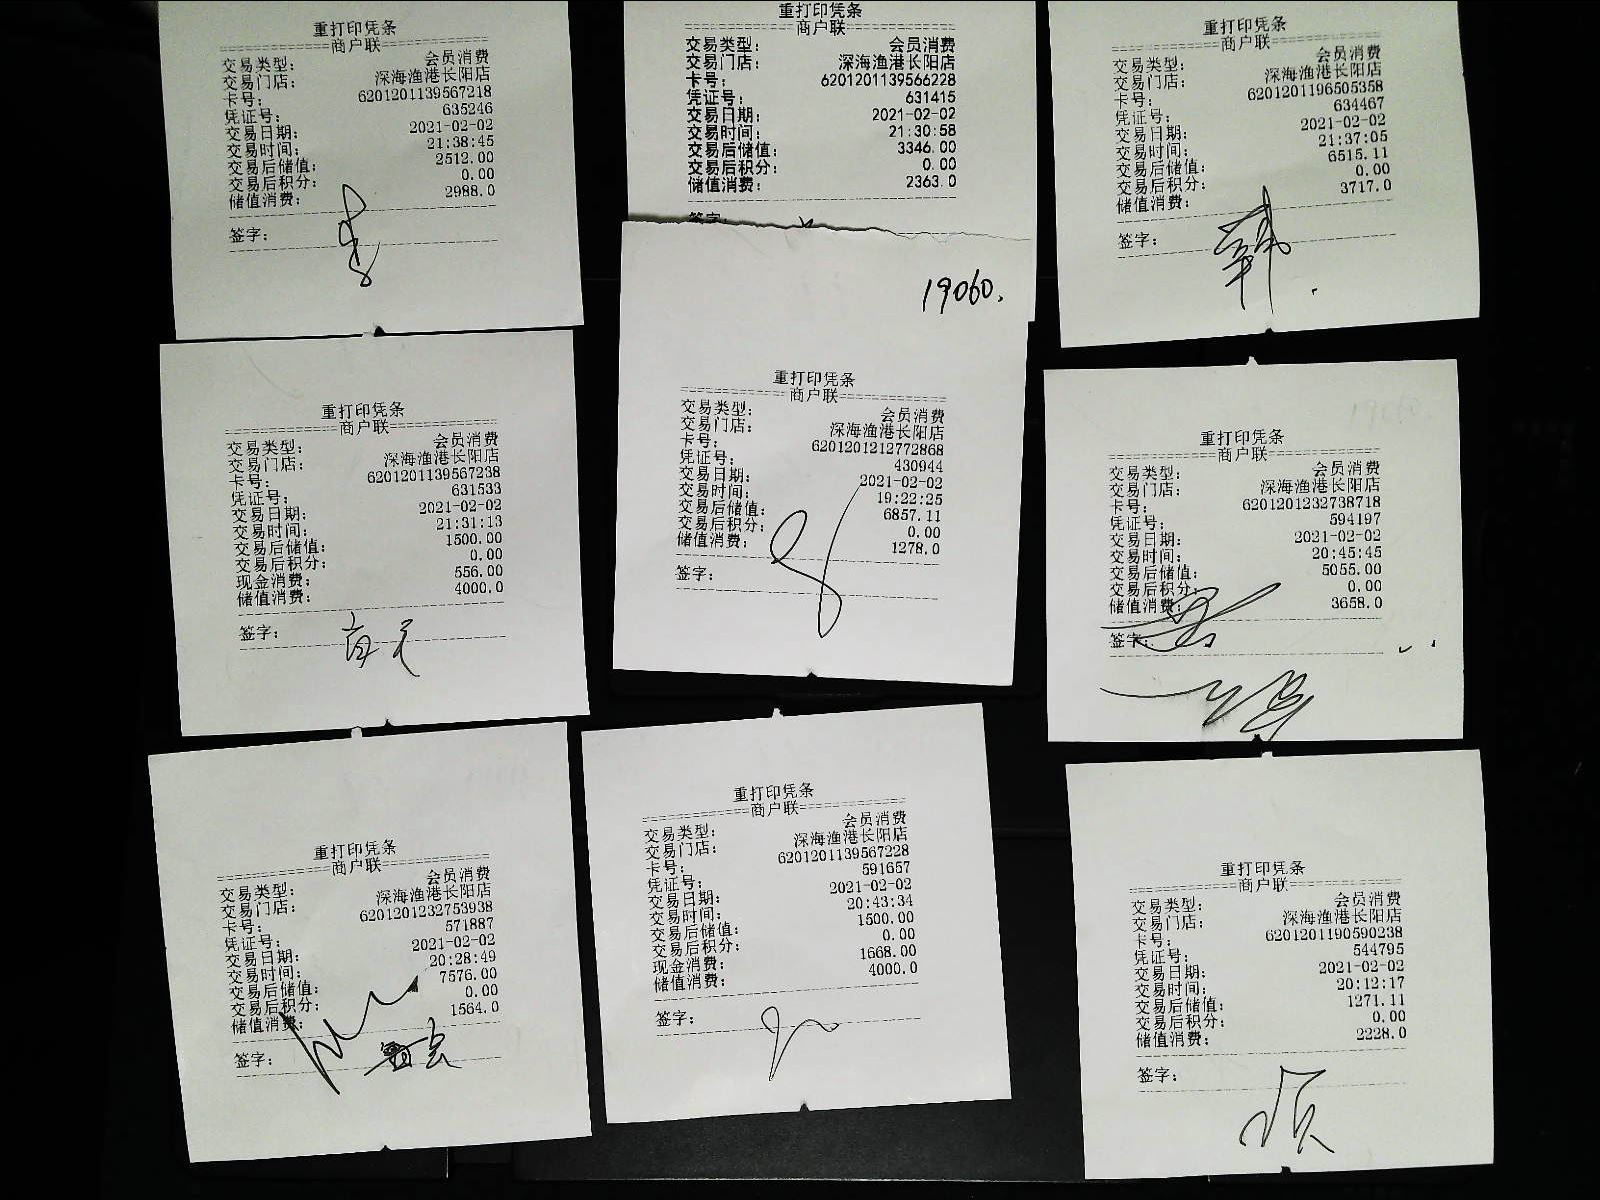 重打印凭条
商户联
交易类型: 会员消费
交易门店: 深海渔港长阳店
卡号: 6201201139567218
凭证号: 635246
交易日期: 2021-02-02
交易时间: 21:38:45
交易后储值: 2512.00
交易后积分: 0.00
储值消费: 2988.0
签字:
重打印凭条
商户联
交易类型: 会员消费
交易门店: 深海渔港长阳店
卡号: 6201201139566228
凭证号: 631415
交易日期: 2021-02-02
交易时间: 21:30:58
交易后储值: 3346.00
交易后积分: 0.00
储值消费: 2363.0
签字:
重打印凭条
商户联
交易类型: 会员消费
交易门店: 深海渔港长阳店
卡号: 6201201196505358
凭证号: 634467
交易日期: 2021-02-02
交易时间: 21:37:05
交易后储值: 6515.11
交易后积分: 0.00
储值消费: 3717.0
签字: 韩
重打印凭条
商户联
交易类型: 会员消费
交易门店: 深海渔港长阳店
卡号: 6201201139567238
凭证号: 631533
交易日期: 2021-02-02
交易时间: 21:31:13
交易后储值: 1500.00
交易后积分: 0.00
现金消费: 556.00
储值消费: 4000.0
签字:
19060.
重打印凭条
商户联
交易类型: 会员消费
交易门店: 深海渔港长阳店
卡号: 6201201212772868
凭证号: 430944
交易日期: 2021-02-02
交易时间: 19:22:25
交易后储值: 6857.11
交易后积分: 0.00
储值消费: 1278.0
签字:
重打印凭条
商户联
交易类型: 会员消费
交易门店: 深海渔港长阳店
卡号: 6201201232738718
凭证号: 594197
交易日期: 2021-02-02
交易时间: 20:45:45
交易后储值: 5055.00
交易后积分: 0.00
储值消费: 3658.0
签字:
重打印凭条
商户联
交易类型: 会员消费
交易门店: 深海渔港长阳店
卡号: 6201201232753938
凭证号: 571887
交易日期: 2021-02-02
交易时间: 20:28:49
交易后储值: 7576.00
交易后积分: 0.00
储值消费: 1564.0
签字:
重打印凭条
商户联
交易类型: 会员消费
交易门店: 深海渔港长阳店
卡号: 6201201139567228
凭证号: 591657
交易日期: 2021-02-02
交易时间: 20:43:34
交易后储值: 1500.00
交易后积分: 0.00
现金消费: 1668.00
储值消费: 4000.0
签字:
重打印凭条
商户联
交易类型: 会员消费
交易门店: 深海渔港长阳店
卡号: 6201201190590238
凭证号: 544795
交易日期: 2021-02-02
交易时间: 20:12:17
交易后储值: 1271.11
交易后积分: 0.00
储值消费: 2228.0
签字: